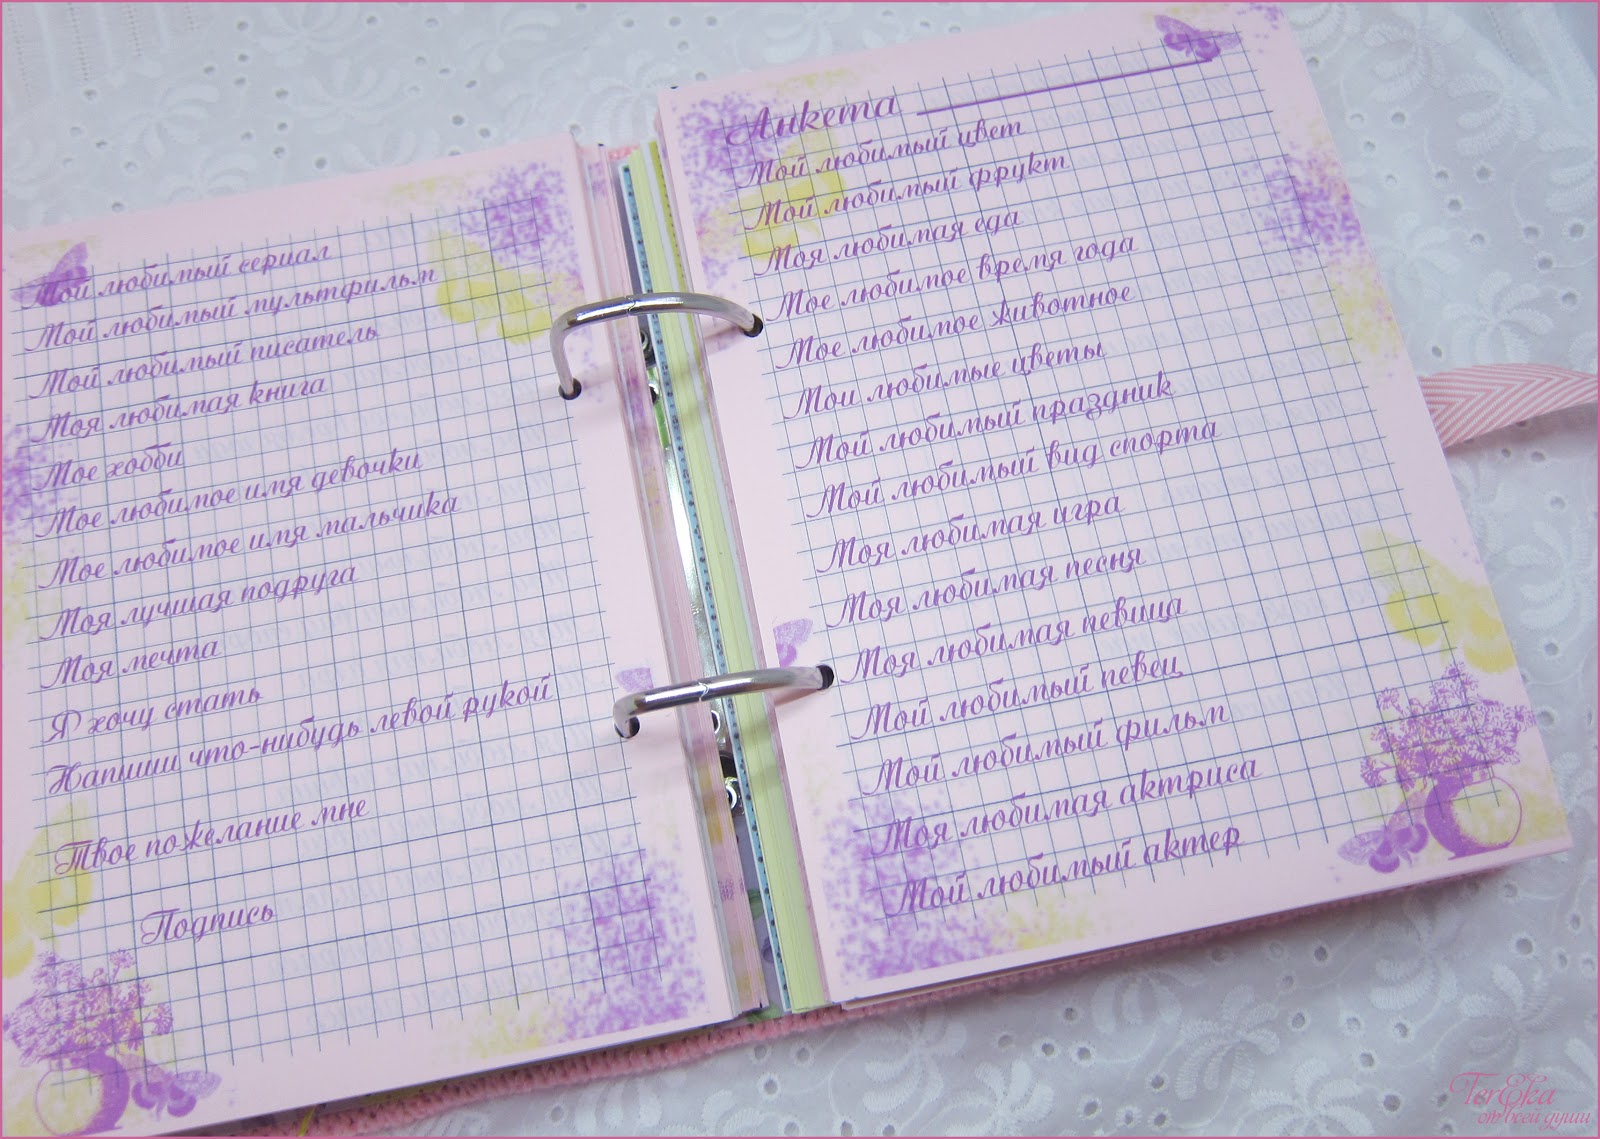 Мой любимый сериал
Мой любимый мультфильм
Мой любимый писатель
Моя любимая книга
Мое хобби
Мое любимое имя девочки
Мое любимое имя мальчика
Моя лучшая подруга
Моя мечта
Я хочу стать
Напиши что-нибудь левой рукой
Твое пожелание мне
Подпись
Анкета
Мой любимый цвет
Мой любимый фрукт
Моя любимая еда
Мое любимое время года
Мое любимое животное
Мои любимые цветы
Мой любимый праздник
Мой любимый вид спорта
Моя любимая игра
Моя любимая песня
Моя любимая певица
Мой любимый певец
Мой любимый фильм
Моя любимая актриса
Мой любимый актер
TerEka
от всей души